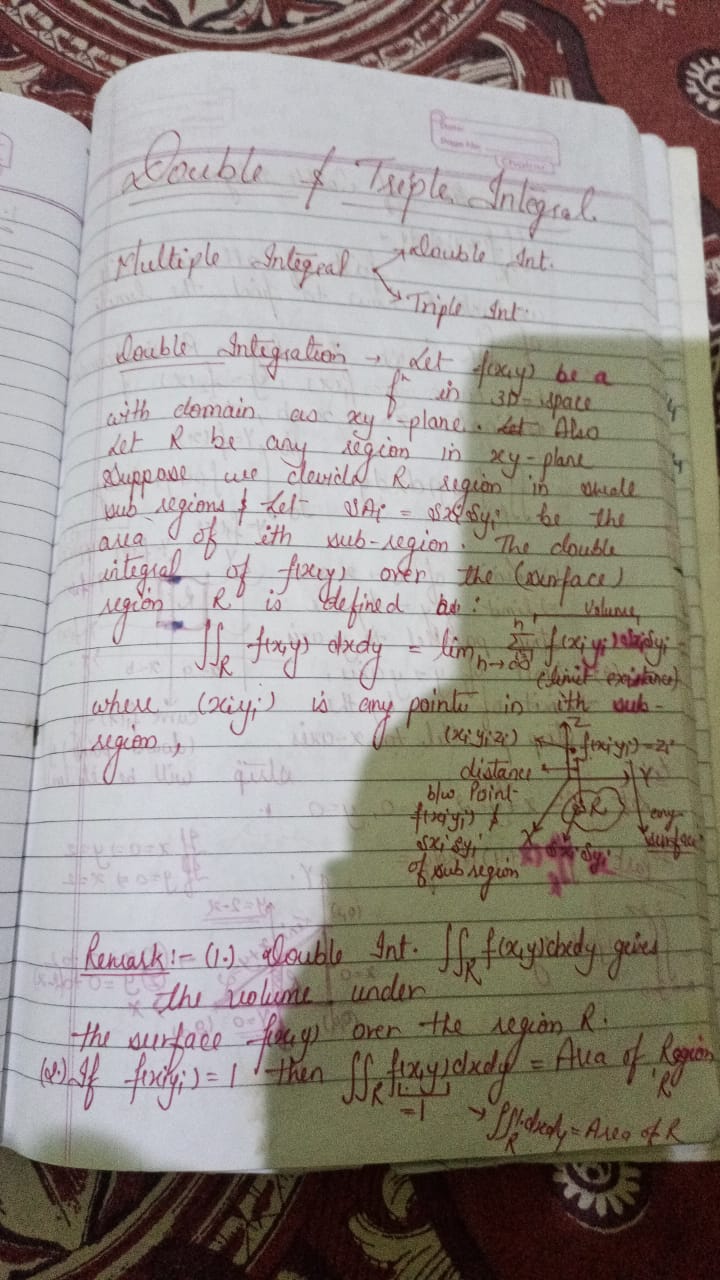 Double & Triple Integral
Multiple Integral
Double Int.
Triple Int.
Double Integration → Let f(x,y) be a
fⁿ in 3D-space
with domain as xy-plane. Let Also
Let R be any region in xy-plane
Suppose we devide R region in smale
sub regions & Let δAi = δxi δyi be the
area of ith sub-region. The double
integral of f(x,y) over the (surface)
region R is defined as: volume,
∬_R f(x,y) dxdy = lim n→∞ Σ f(xi yi) δxi δyi
(limit existance)
where (xi yi) is any points in ith sub-
region,
(xi yi zi)
Z
f(xi yi) = zi
distance
b/w Point
f(xi yi) &
δxi δyi
of sub region
Y
R
X
δxi δyi
any
surface
Remark :- (1.) Double Int. ∬_R f(x,y)dxdy gives
the volume under
the surface f(x,y) over the region R.
(2.) If f(xi yi) = 1 then ∬_R f(x,y)dxdy = Area of Region
=1
'R'
→ ∬_R 1.dxdy = Area of R